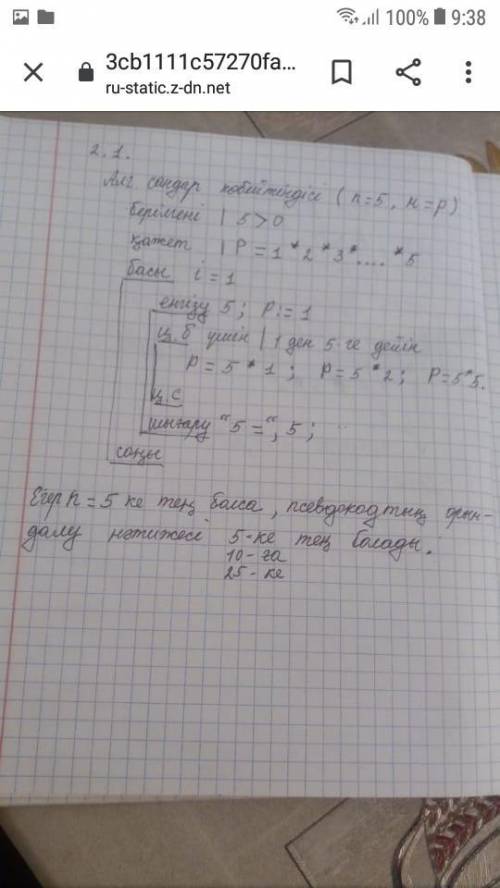 100% 9:38
3cb1111c57270fa...
ru-static.z-dn.net
2.1.
Алг сандар көбейтіндісі (n=5, н=р)
берілгені | 5>0
қажет | P=1*2*3*....*5
басы i=1
енгізу 5; P:=1
ц.б үшін | 1 ден 5-ге дейін
P=5*1; P=5*2; P=5*5.
ц.с
шығару "5=", 5;
соңы
Егер n=5 ке тең болса, псевдокодтың орын-
далу нәтижесі 5-ке тең болады.
10-ға
25-ке